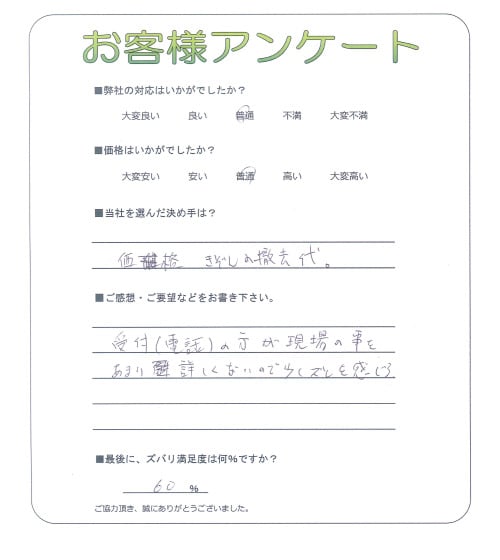 お客様アンケート
■弊社の対応はいかがでしたか?
大変良い 良い 普通 不満 大変不満
■価格はいかがでしたか?
大変安い 安い 普通 高い 大変高い
■当社を選んだ決め手は?
価格 の撤去代。
■ご感想・ご要望などをお書き下さい。
受付(電話)の方が現場の事を
あまり詳しくないので少しズレを感じる
■最後に、ズバリ満足度は何%ですか?
60 %
ご協力頂き、誠にありがとうございました。